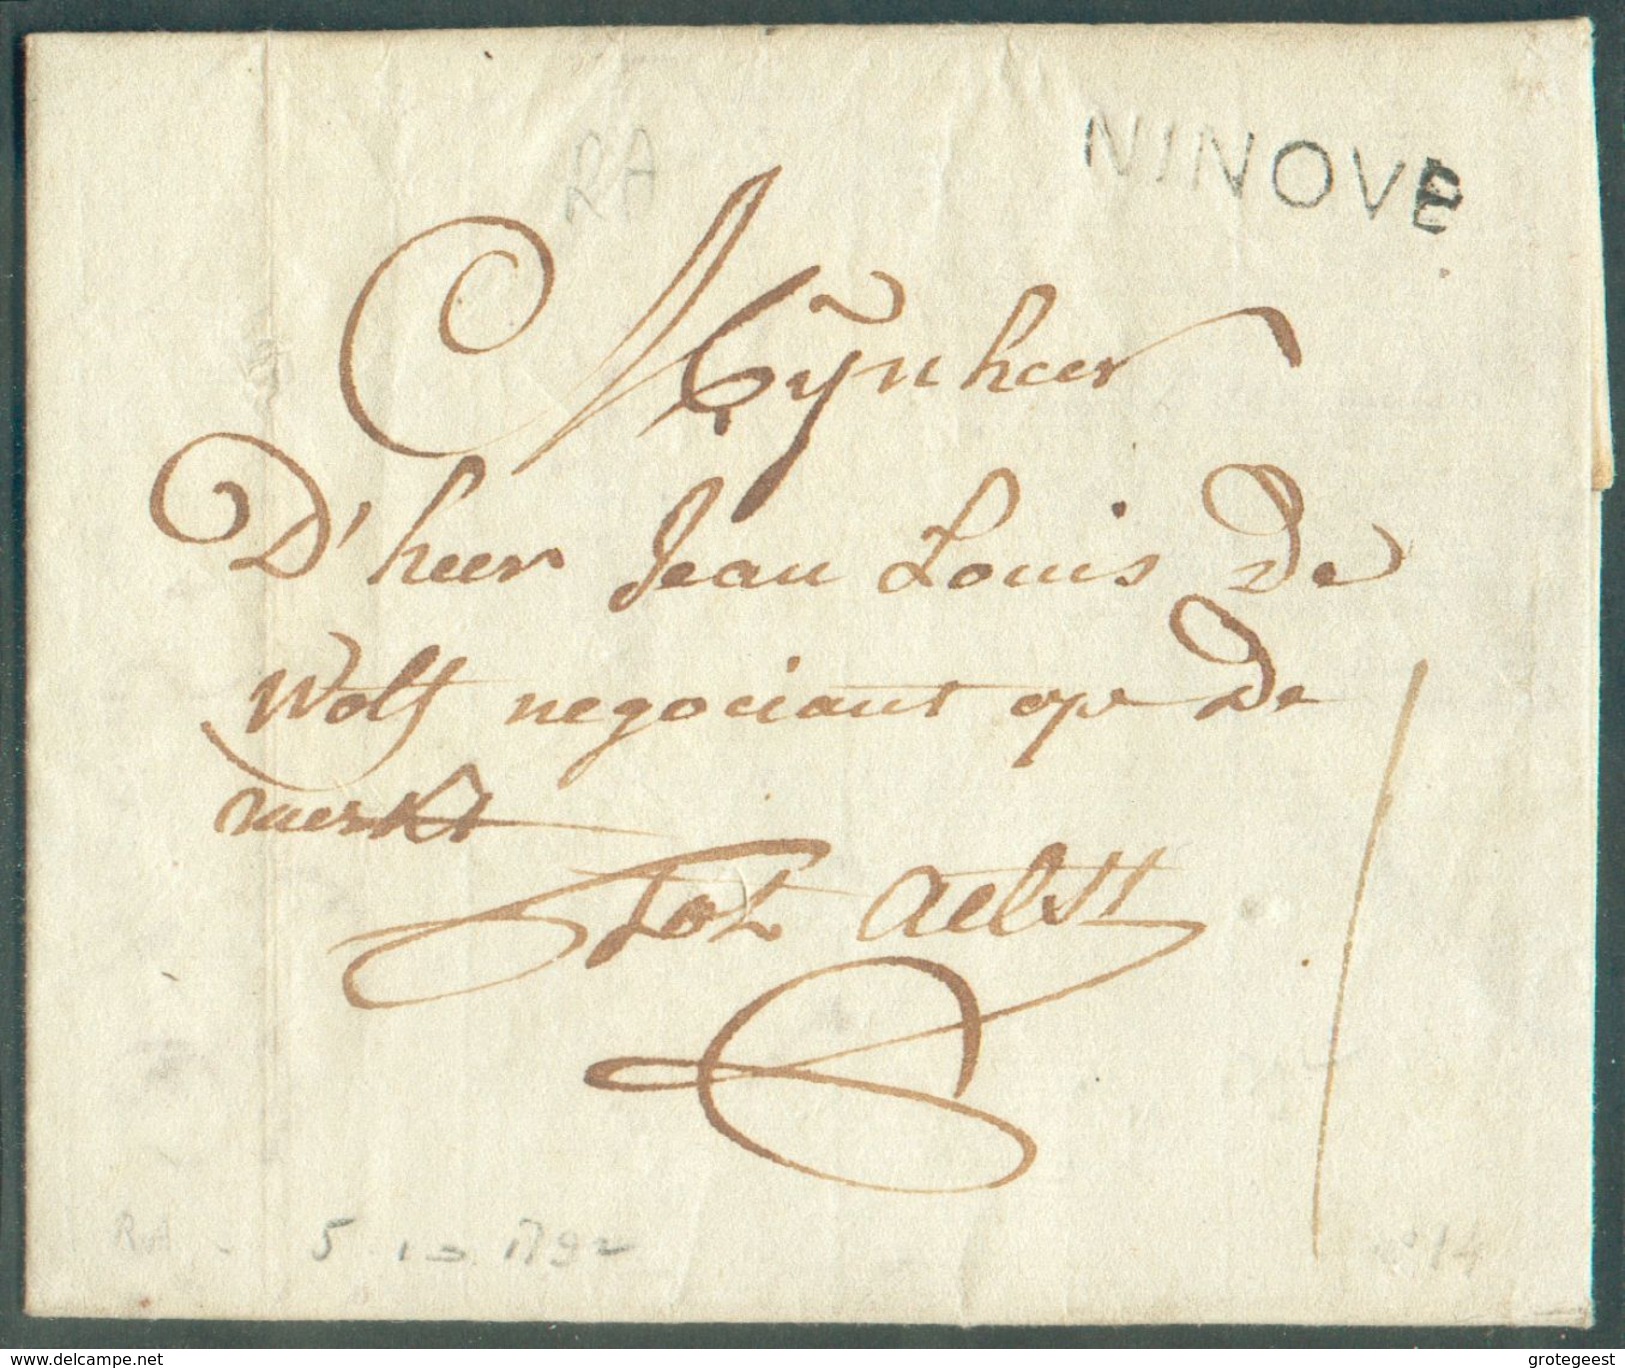 NINOVE
RA
Mÿnheer
D'heer Jean Louis De
Wolf negociant op De
merkt
tot Aelst
RA
5 10 1792
n° 14
www.delcampe.net
grotegeest